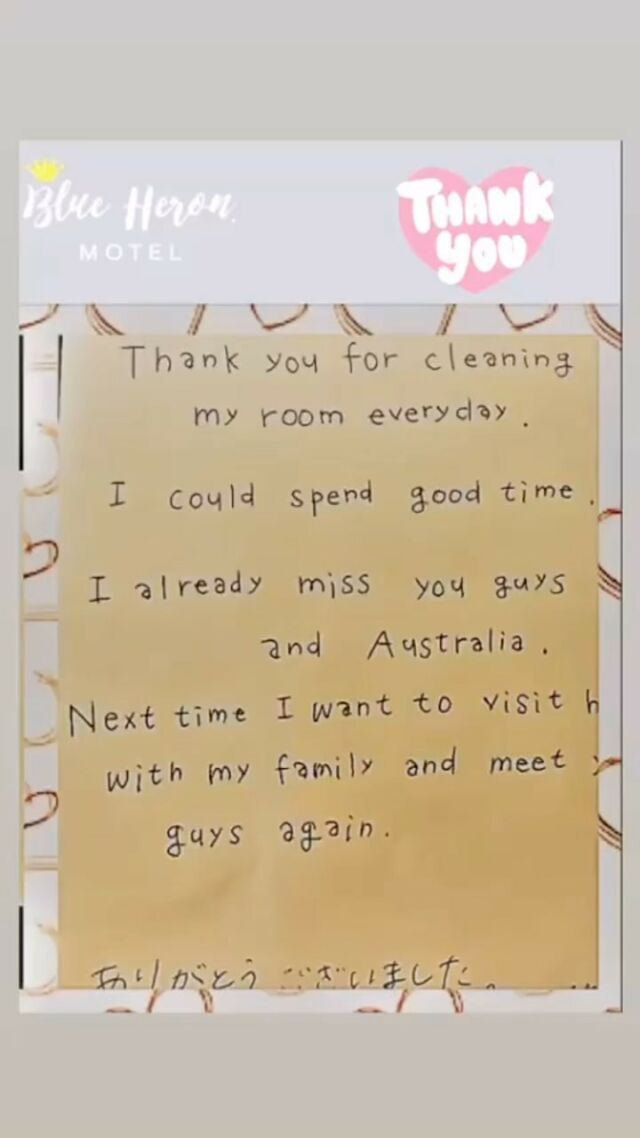 Blue Heron.
MOTEL
THANK
YOU
Thank you for cleaning
my room everyday.
I could spend good time.
I already miss you guys
and Australia.
Next time I want to visit h
with my family and meet
guys again.
ありがとうございました。